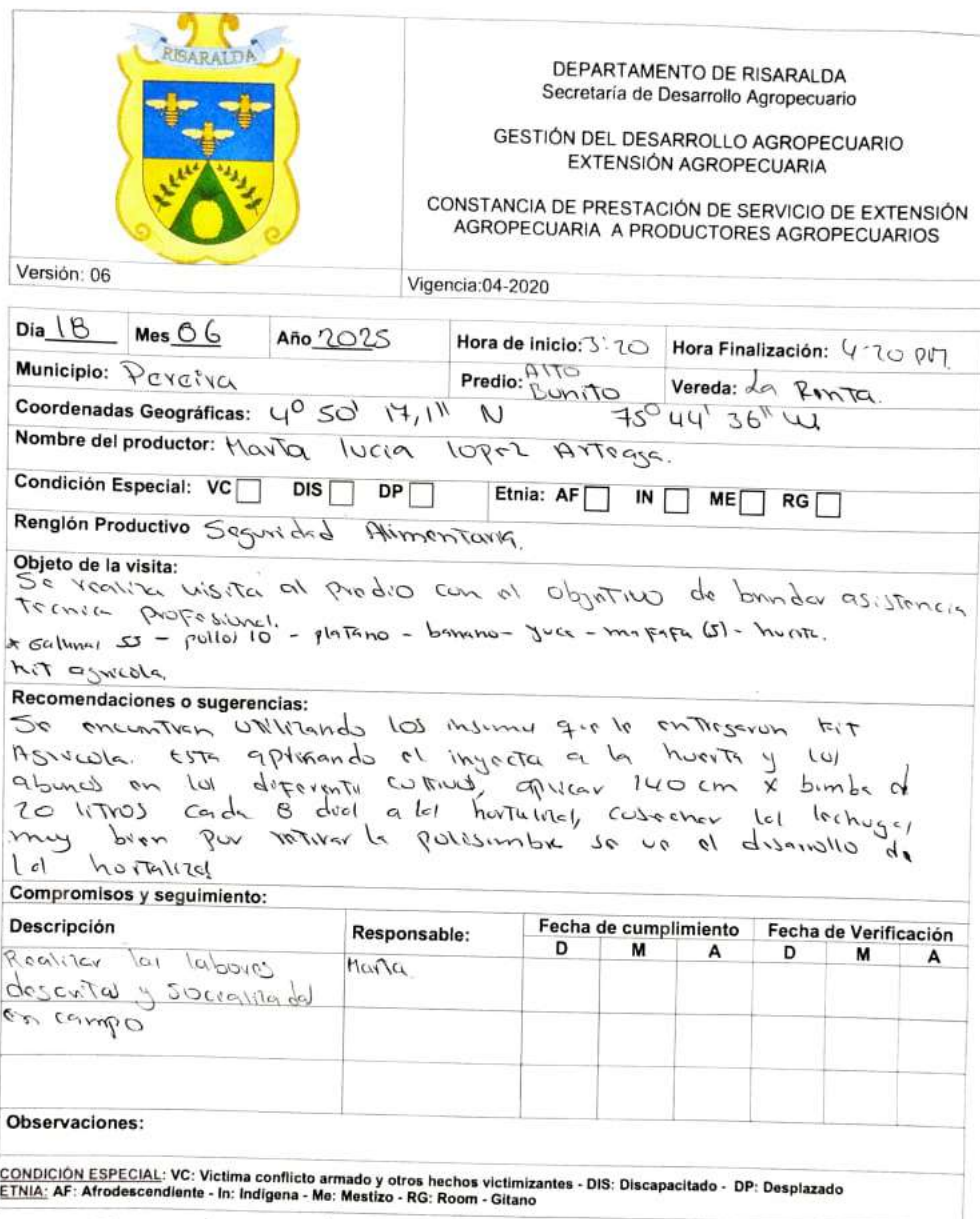 RISARALDA
DEPARTAMENTO DE RISARALDA
Secretaría de Desarrollo Agropecuario
GESTIÓN DEL DESARROLLO AGROPECUARIO
EXTENSIÓN AGROPECUARIA
CONSTANCIA DE PRESTACIÓN DE SERVICIO DE EXTENSIÓN
AGROPECUARIA A PRODUCTORES AGROPECUARIOS
Versión: 06
Vigencia:04-2020
Día 18 Mes 06 Año 2025 Hora de inicio: 3:20 Hora Finalización: 4-20 PM
Municipio: Pereira Predio: Alto Bonito Vereda: La
Coordenadas Geográficas: 4° 50' 17,1" N 75° 44' 36" W
Nombre del productor: Marta lucia lopez Arteaga.
Condición Especial: VC DIS DP Etnia: AF IN ME RG
Renglón Productivo Seguridad Alimentaria.
Objeto de la visita:
Se realiza visita al predio con el objetivo de brindar asistencia
tecnica profesional.
* Gallinas 55 - pollos 10 - platano - banano - yuca - mafafa (5) - huerta.
kit agricola.
Recomendaciones o sugerencias:
Se encuentran utilizando los insumos que le entregaron kit
Agricola. Esta aplicando el inyecta a la huerta y los
abonos en los diferentes cultivos, aplicar 140 cm x bomba de
20 litros cada 8 dias a las hortalizas, cosechar las lechugas,
muy bien por retirar la polisombra se ve el desarrollo de
las hortalizas
Compromisos y seguimiento:
Descripción Responsable: Fecha de cumplimiento Fecha de Verificación
D M A D M A
Realizar las labores Marta
descritas y socializadas
en campo
Observaciones:
CONDICIÓN ESPECIAL: VC: Victima conflicto armado y otros hechos victimizantes - DIS: Discapacitado - DP: Desplazado
ETNIA: AF: Afrodescendiente - In: Indígena - Me: Mestizo - RG: Room - Gitano